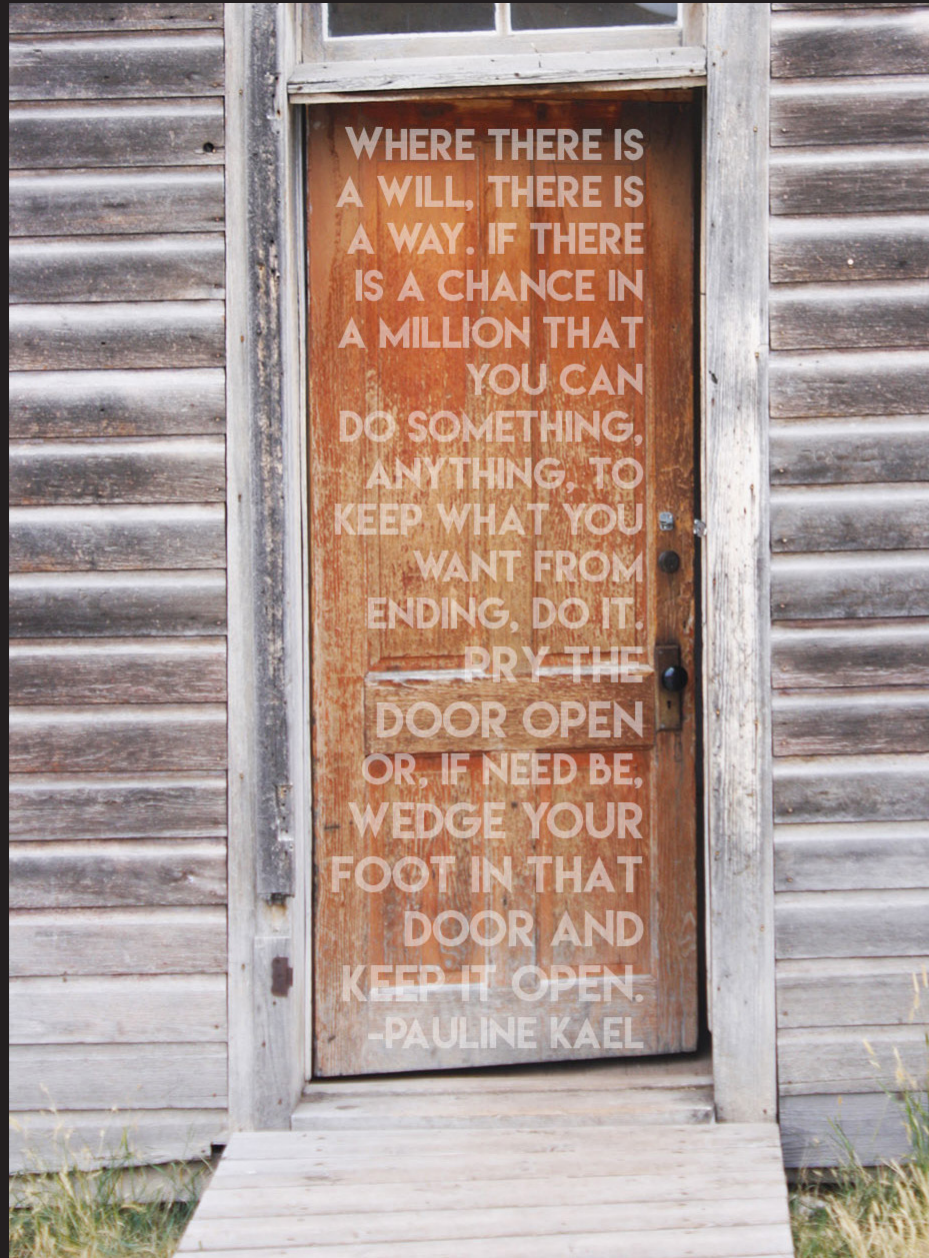 WHERE THERE IS
A WILL, THERE IS
A WAY. IF THERE
IS A CHANCE IN
A MILLION THAT
YOU CAN
DO SOMETHING,
ANYTHING, TO
KEEP WHAT YOU
WANT FROM
ENDING, DO IT.
PRY THE
DOOR OPEN
OR, IF NEED BE,
WEDGE YOUR
FOOT IN THAT
DOOR AND
KEEP IT OPEN.
-PAULINE KAEL